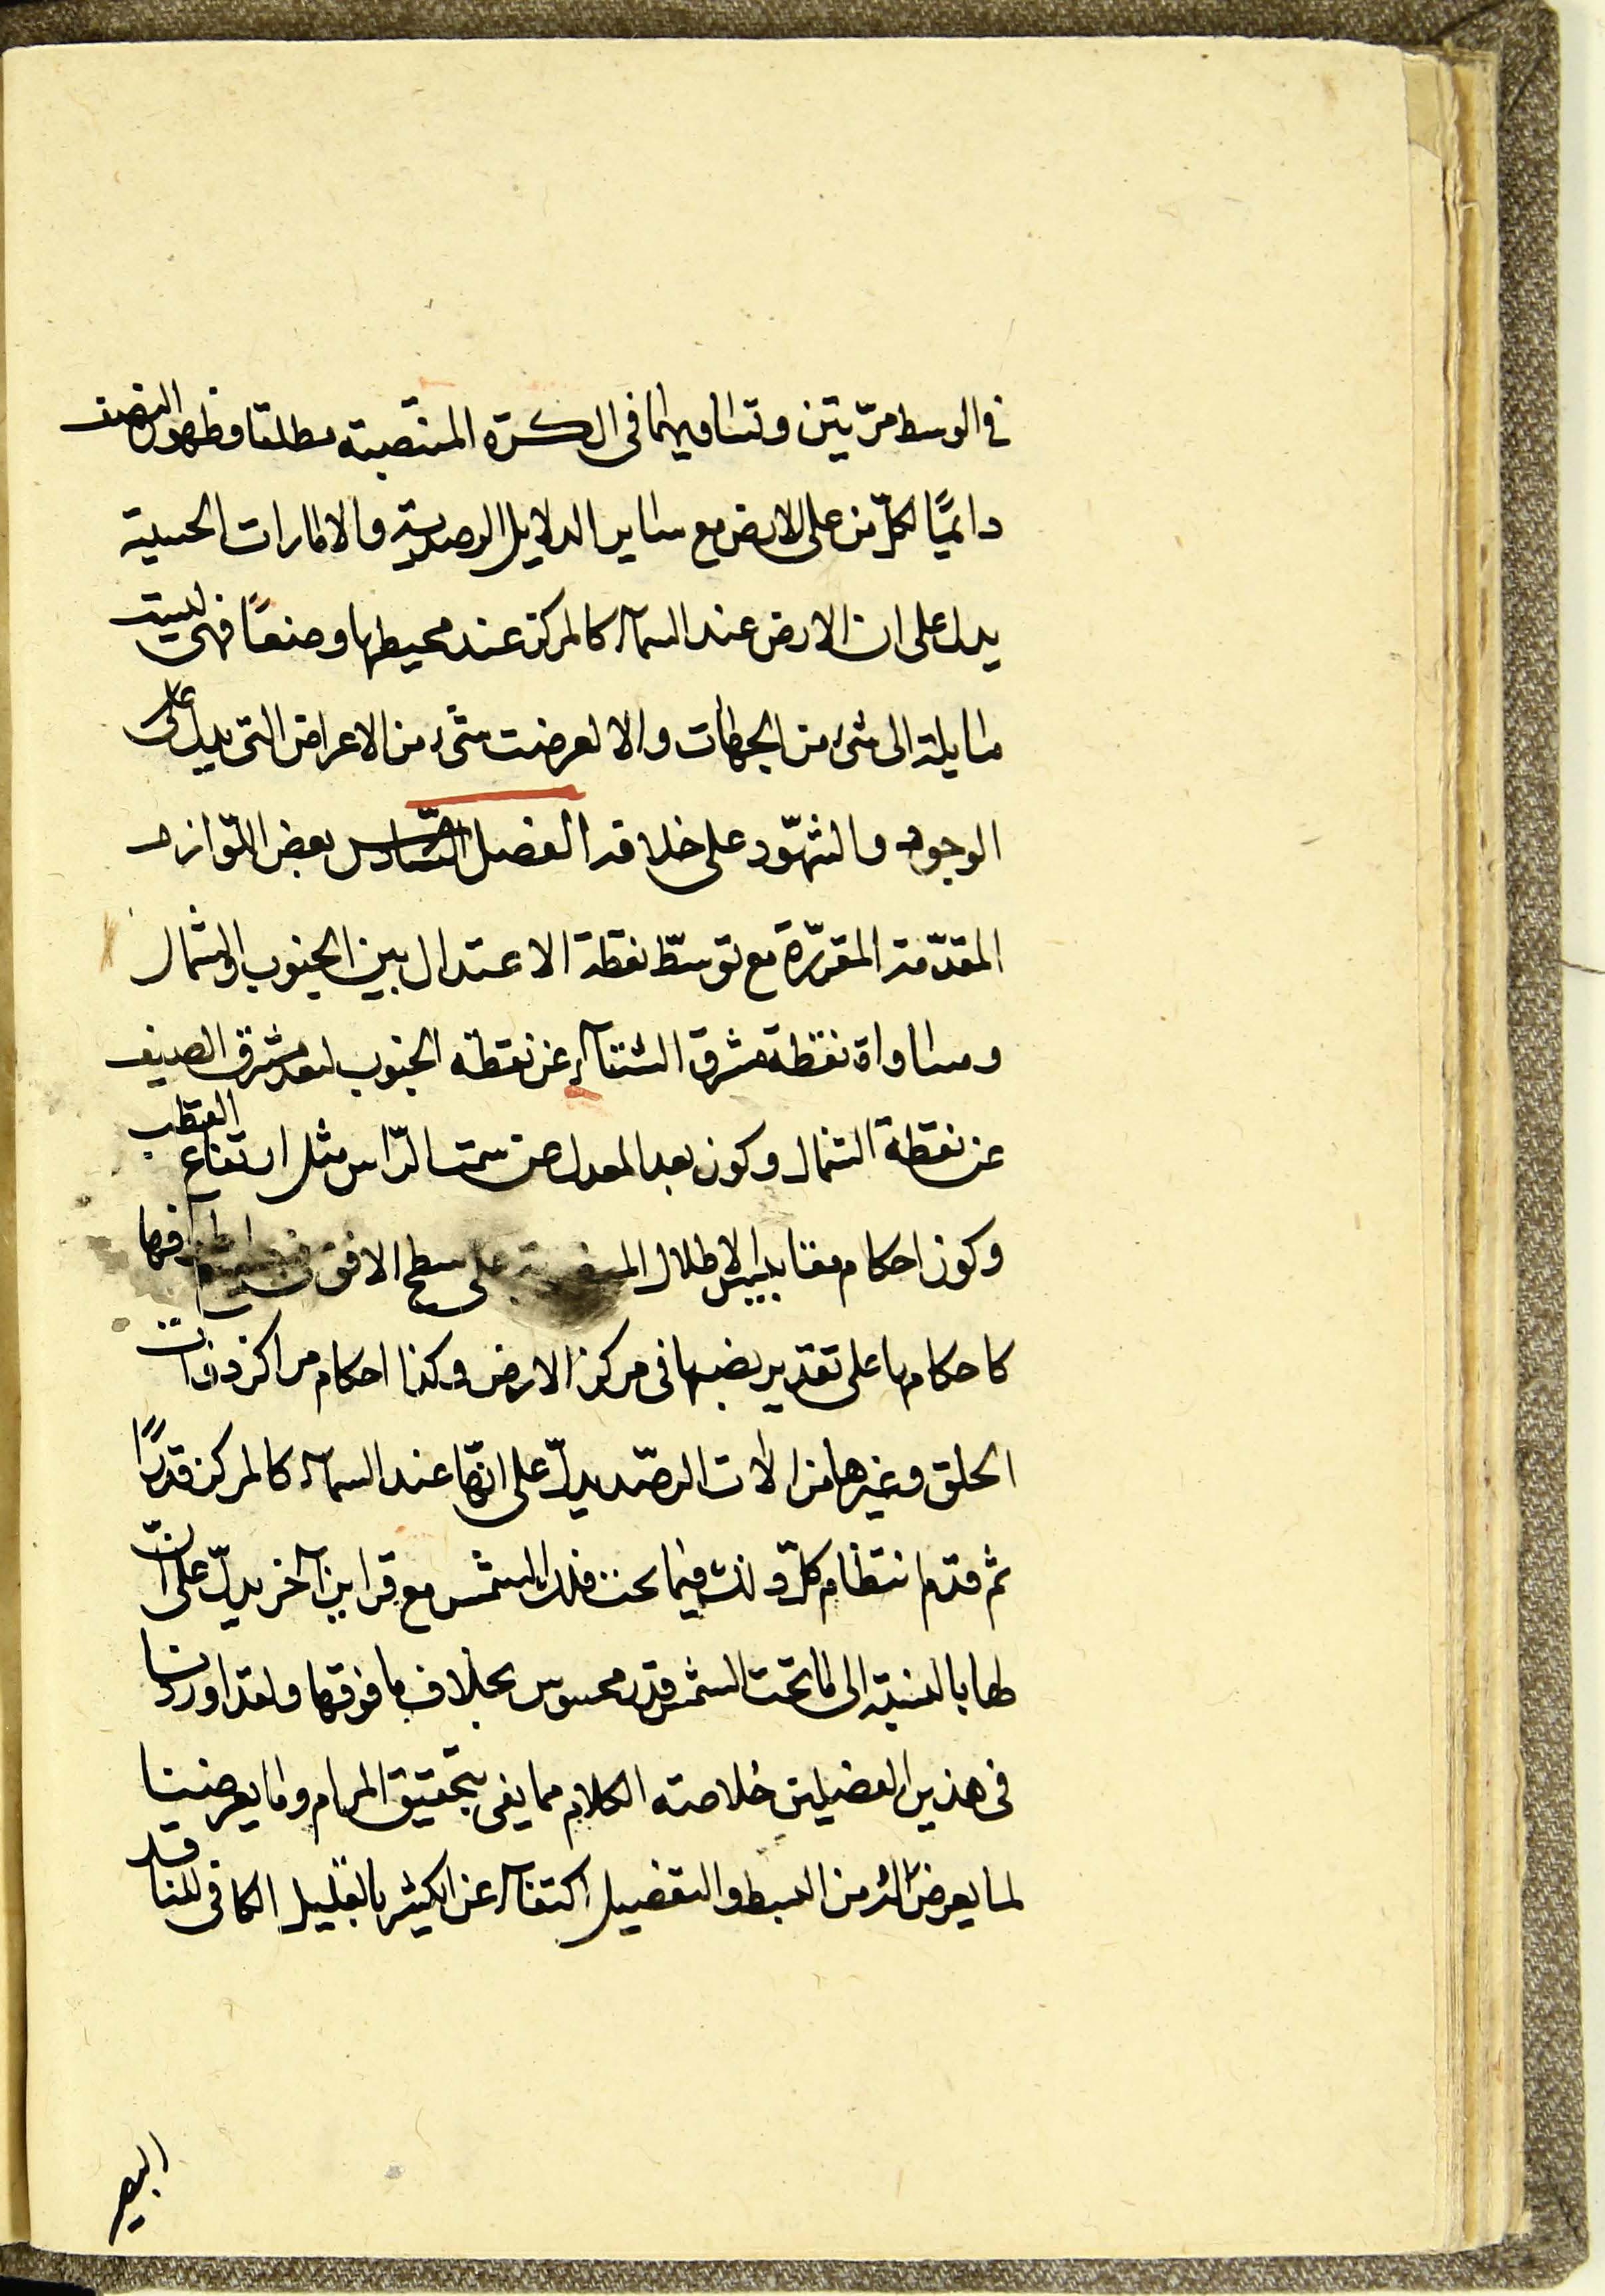 فى الوسط مرّتين وتساويهما فى الكرة المنتصبة مطلقا وظهور النصف
دائميًا لكلّ من على الارض مع ساير الدلايل الرصدية والامارات الحسية
يدل على ان الارض عند السمآء كالمركز عند محيطها وضعًا فهى ليست
مايلة الى شىء من الجهات والا لعرضت شىء من الاعراض التى يدل على
الوجود والشهّود على خلافه الفصل السّادس بعض اللّوازم
المقدّمة المقرّرة مع توسّط نقطة الاعتدال بين الجنوب والشمال
ومساواة نقطة مشرق الشتآء عن نقطه الجنوب لبعد مشرق الصيف
عن نقطة الشمال وكون بعد المعدل عن سمت الرّاس مثل ارتفاع القطب
وكون احكام مقاييس الاظلال على سطح الافق
كاحكامها على تقدير نصبها فى مركز الارض وكذا احكام مراكز ذوات
الحلق وغيرها من الات الرصد يدلّ على انّها عند السمآء كالمركز قدرًا
ثم قدم انتظام كلّ ذلك فيما تحت فلك الشمس مع قراين آخر يدلّ على انّ
لها بالنسبة الى ما تحت الشمس قدر محسوس بخلاف ما فوقها ولقد اوردنا
فى هذين الفصلين خلاصة الكلام مما يفى بتحقيق المرام وما يعرضنا
لما يعرض اكثر من البسط والتفصيل اكتفآء عن الكثير بالقليل الكافى للناقد
البصير